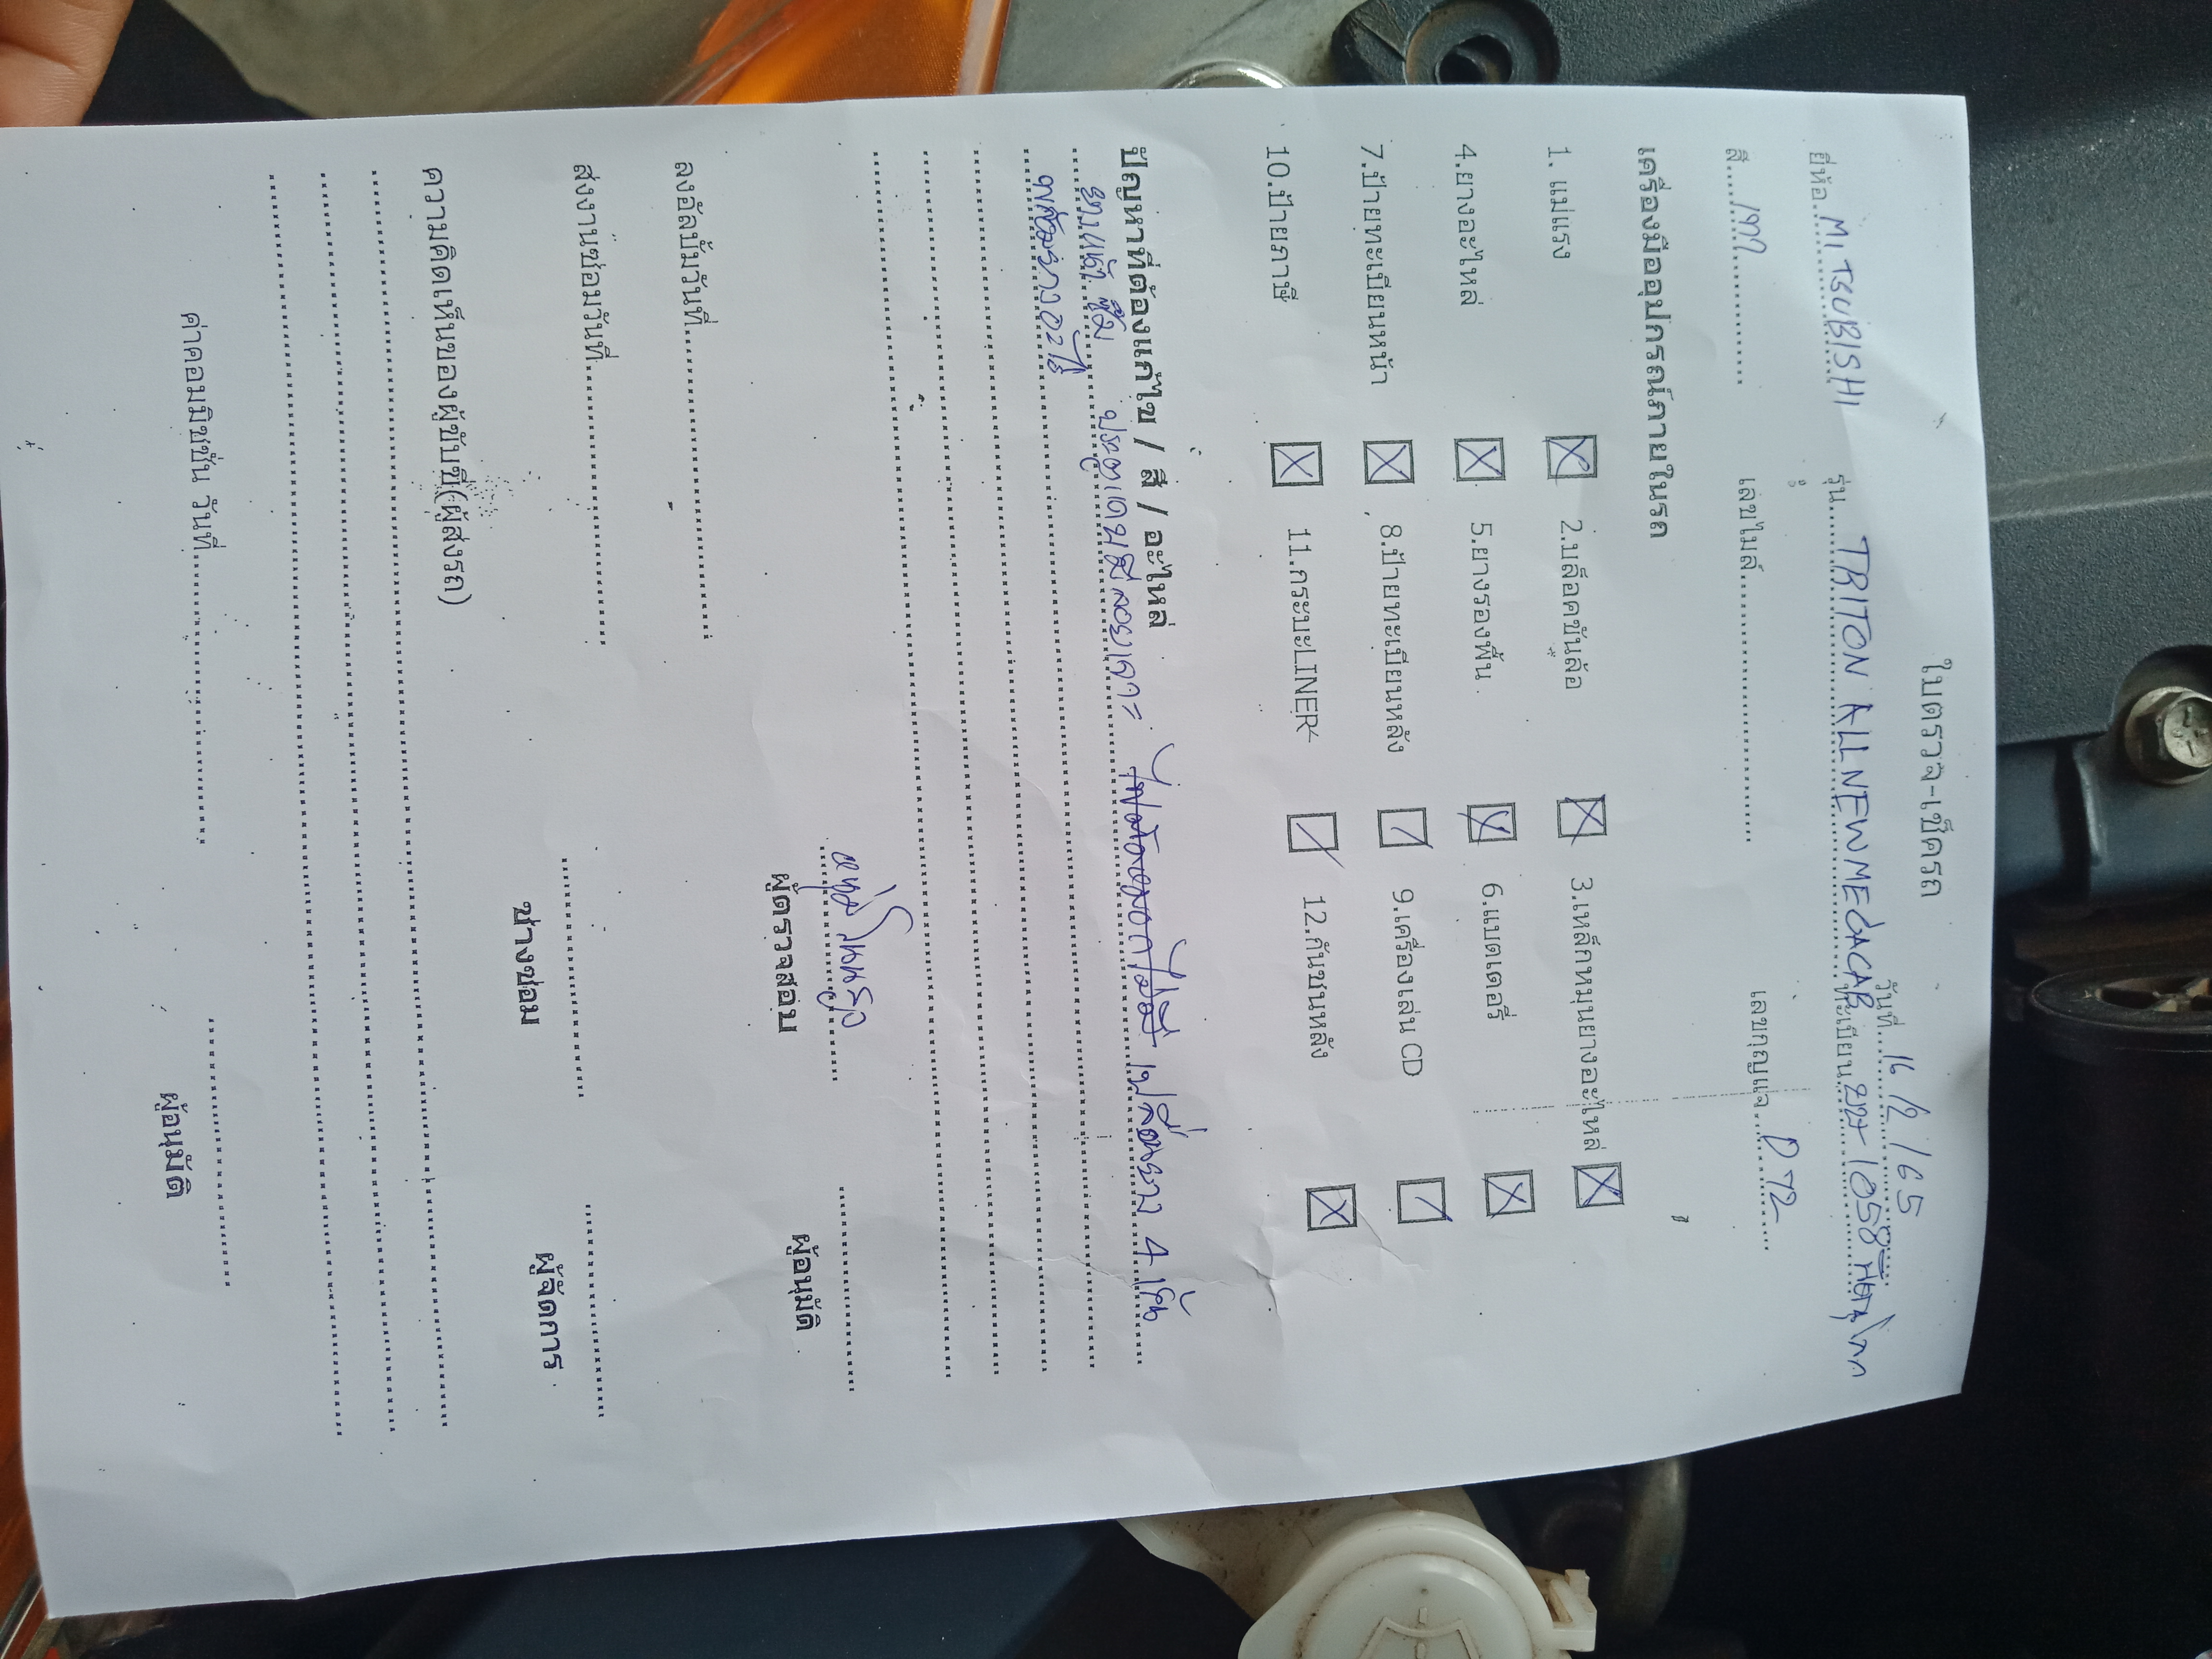 ใบตรวจ-เช็ครถ
วันที่ 16/2/65
ยี่ห้อ MITSUBISHI รุ่น TRITON ALLNEWMEGACAB ทะเบียน 1058
สี เทา เลขไมล์ เลขกุญแจ D72
เครื่องมืออุปกรณ์ภายในรถ
1. แม่แรง 2.บล็อคขันล้อ 3.เหล็กหมุนยางอะไหล่
4.ยางอะไหล่ 5.ยางรองพื้น 6.แบตเตอรี่
7.ป้ายทะเบียนหน้า 8.ป้ายทะเบียนหลัง 9.เครื่องเล่น CD
10.ป้ายภาษี 11.กระบะLINER 12.กันชนหลัง
ปัญหาที่ต้องแก้ไข / สี / อะไหล่
ประตูแคบซ้าย เปลี่ยนยาง 4 เส้น
ผู้ตรวจสอบ ผู้อนุมัติ
ลงอัลบั้มวันที่
ส่งงานซ่อมวันที่
ช่างซ่อม ผู้จัดการ
ความคิดเห็นของผู้ขับขี่(ผู้ส่งรถ)
ค่าคอมมิชชั่น วันที่
ผู้อนุมัติ